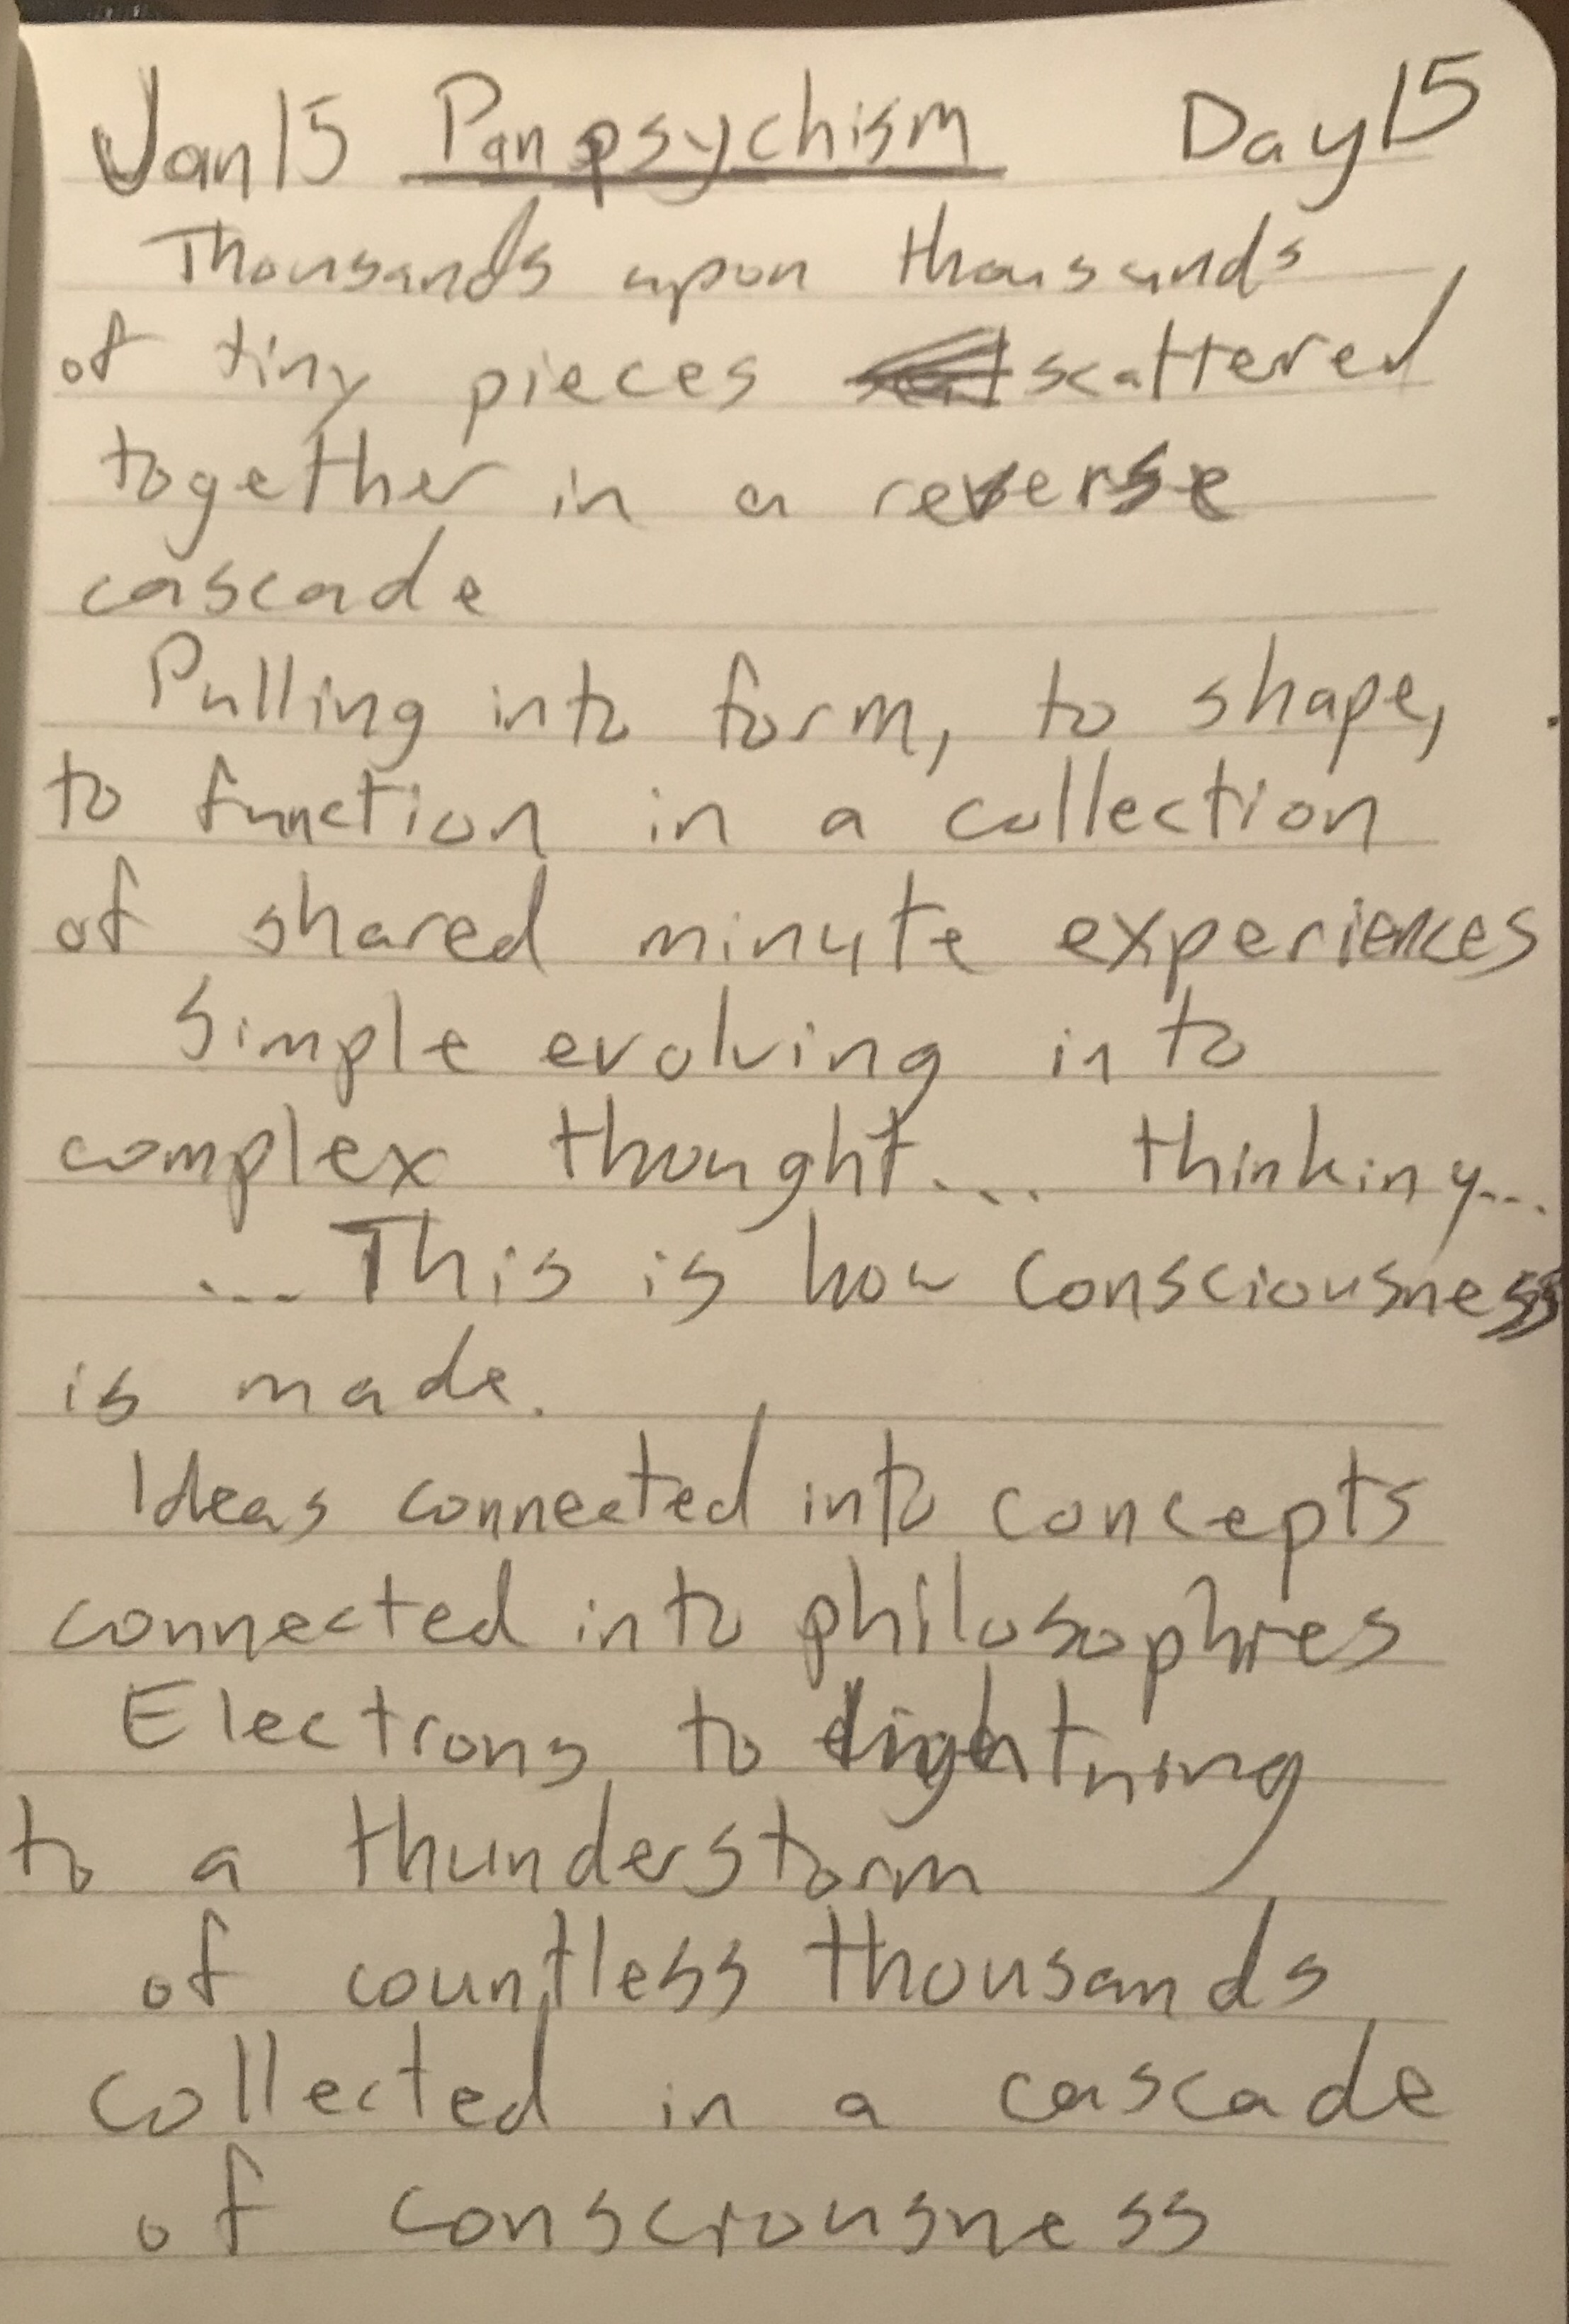 Jan 15 Panpsychism Day 15
Thousands upon thousands
of tiny pieces scattered
together in a reverse
cascade
Pulling into form, to shape,
to function in a collection
of shared minute experiences
Simple evolving into
complex thought... thinking...
...This is how consciousness
is made.
Ideas connected into concepts
connected into philosophies
Electrons to lightning
to a thunderstorm
of countless thousands
collected in a cascade
of consciousness